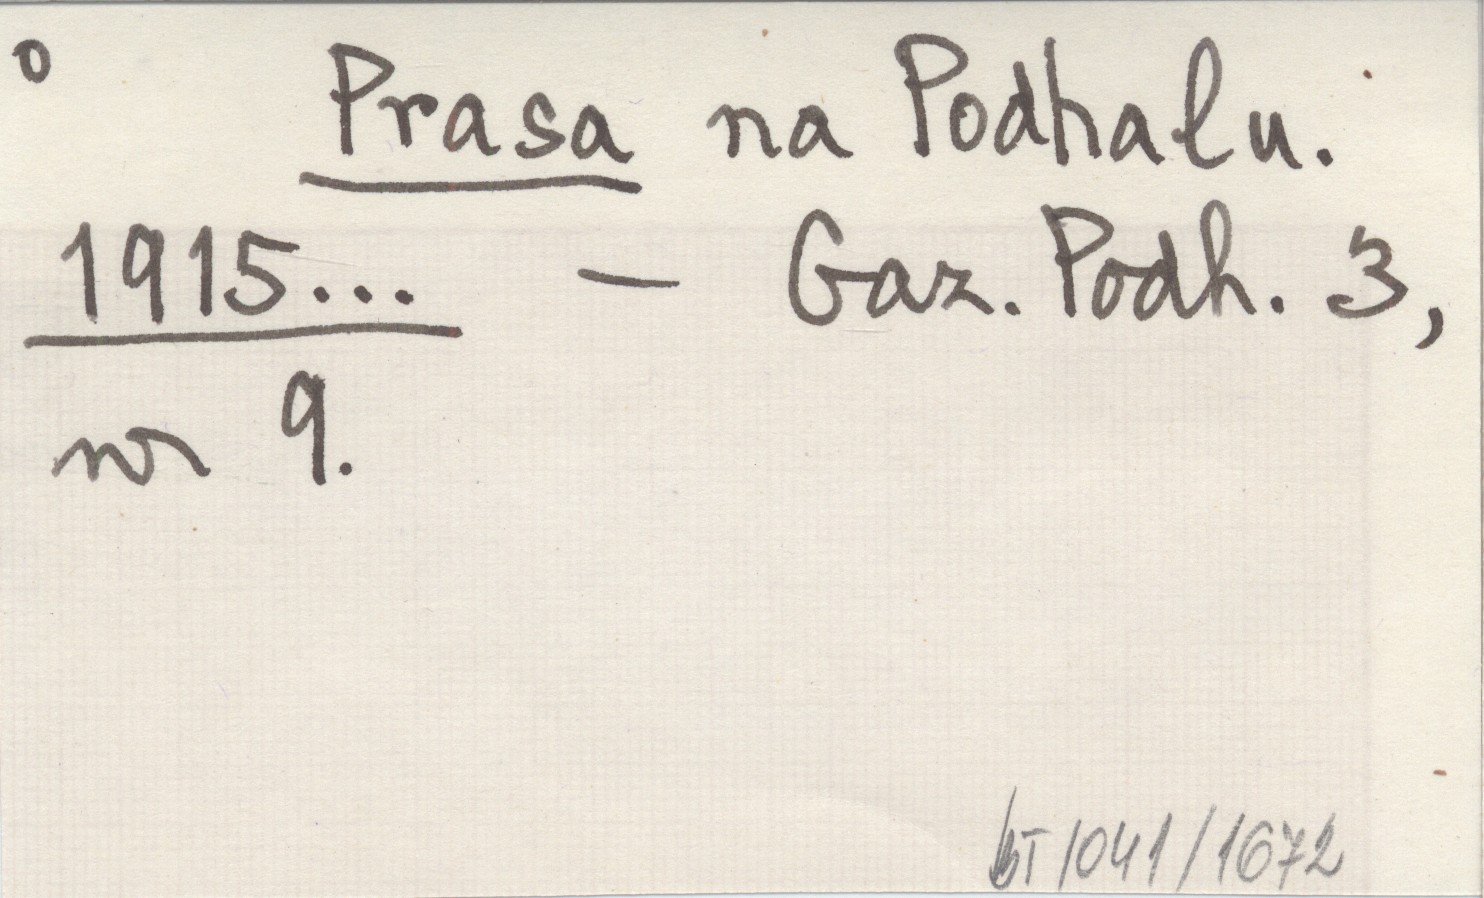 o Prasa na Podhalu.
1915... — Gaz. Podh. 3,
nr 9.
bT/041/1672